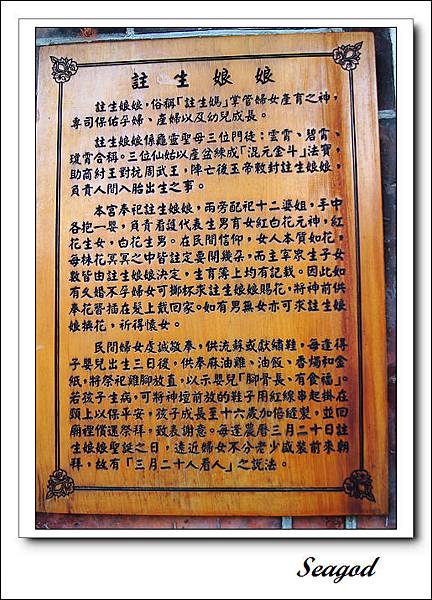 註生娘娘
註生娘娘，俗稱「註生媽」掌管婦女產育之神，
專司保佑孕婦、產婦以及幼兒成長。
註生娘娘係龜靈聖母三位門徒：雲霄、碧霄、
瓊霄合稱。三位仙姑以產盆練成「混元金斗」法寶，
助商紂王對抗周武王，陣亡後玉帝敕封註生娘娘，
負責人間入胎出生之事。
本宮奉祀註生娘娘，兩旁配祀十二婆姐，手中
各抱一嬰，負責看護代表生男育女紅白花元神，紅
花生女，白花生男。在民間信仰，女人本質如花，
每株花冥冥之中皆註定要開幾朵，而主宰眾生子女
數皆由註生娘娘決定，生育簿上均有記載。因此如
有久婚不孕婦女可擲杯求註生娘娘賜花，將神前供
奉花簪插在髮上戴回家。如有男無女亦可求註生娘
娘換花，祈得懷女。
民間婦女虔誠敬奉，供流蘇或獻繡鞋，每逢得
子嬰兒出生三日後，供奉麻油雞、油飯、香燭和金
紙，將祭祀雞腳放直，以示嬰兒「腳骨長、有食福」。
若孩子生病，可將神壇前放的鞋子用紅線串起掛在
頸上以保平安，孩子成長至十六歲加倍縫製，並回
廟裡償還祭拜，致表謝意。每逢農曆三月二十日註
生娘娘聖誕之日，遠近婦女不分老少盛裝前來朝
拜，故有「三月二十人看人」之說法。
Seagod